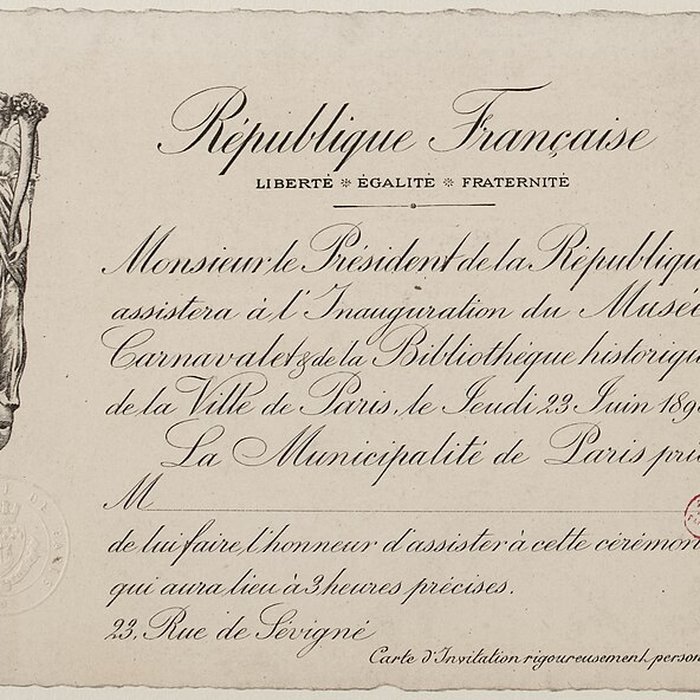 République Française
LIBERTÉ * ÉGALITÉ * FRATERNITÉ
Monsieur le Président de la Républiqu
assistera à l'Inauguration du Musée
Carnavalet & de la Bibliothèque historiqu
de la Ville de Paris, le Jeudi 23 Juin 189
La Municipalité de Paris pri
M
de lui faire l'honneur d'assister à cette cérémon
qui aura lieu à 3 heures précises.
23, Rue de Sévigné
Carte d'Invitation rigoureusement person